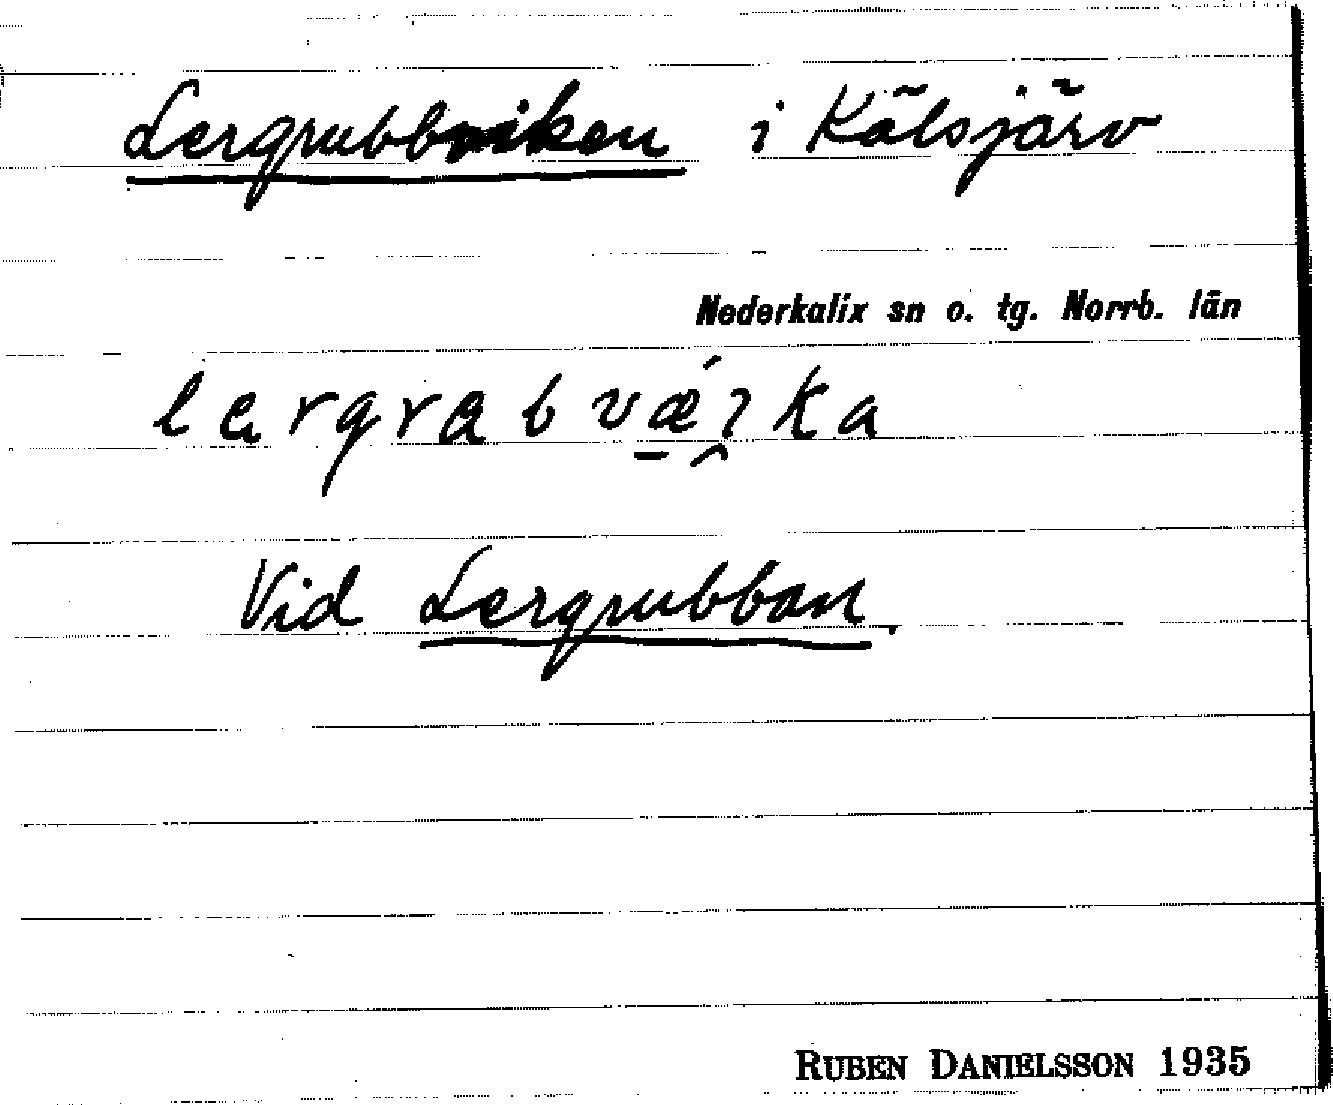 Lergrubbviken i Kälsjärv
Nederkalix sn o. tg. Norrb. län
lergrabvǽıka
Vid Lergrubban.
RUBEN DANIELSSON 1935